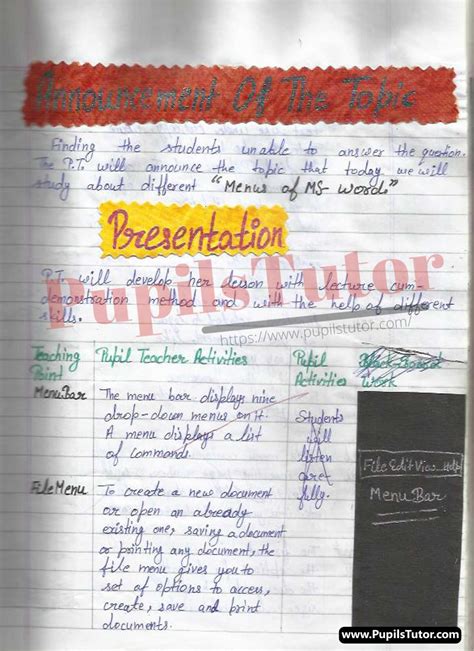 Announcement Of The Topic
Finding the students unable to answer the question.
The P.T. will announce the topic that today we will
study about different "Menus of MS-Word."
Presentation
P.T. will develop her lesson with lecture cum-
demostration method and with the help of different
skills.
PupilsTutor
https://www.pupilstutor.com/
Teaching Point
Pupil Teacher Activities
Pupil Activities
Work
MenuBar
The menu bar displays nine
drop-down menus on it.
A menu displays a list
of commands.
Students
will
listen
fully.
File Edit View Help
Menu Bar
FileMenu
To create a new document
or open an already
existing one, saving a document
or printing any document, the
file menu gives you to
set of options to access,
create, save and print
documents.
www.PupilsTutor.com